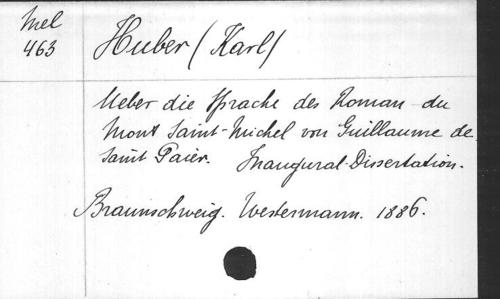 Mel
463
Huber (Karl)
Ueber die Sprache des Roman du
Mont Saint-Michel von Guillaume de
Saint Paier. Inaugural-Dissertation.
Braunschweig. Westermann. 1886.